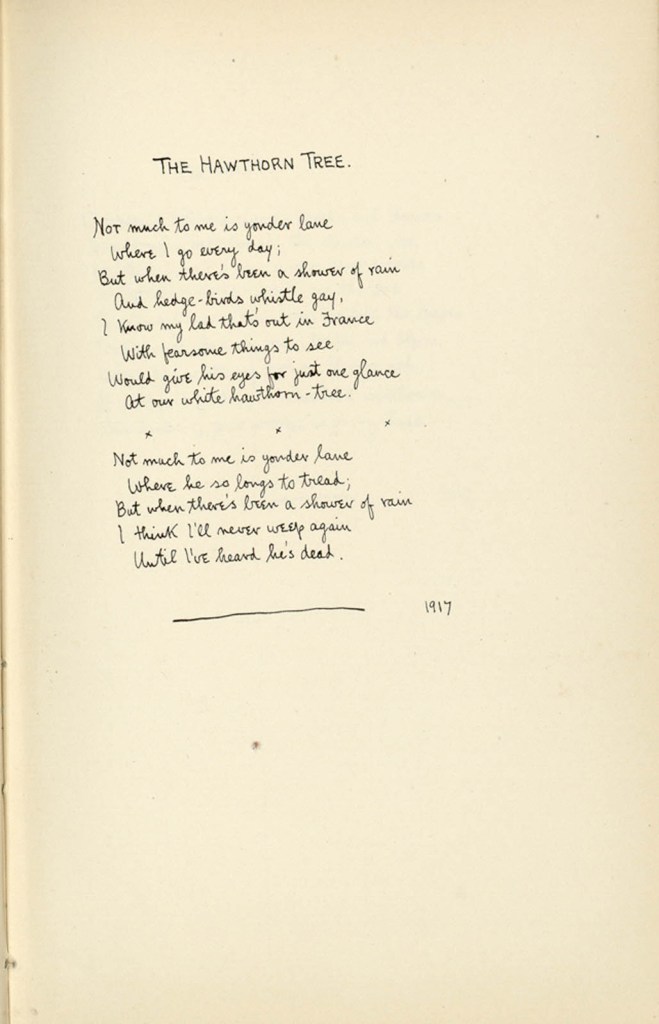 THE HAWTHORN TREE.
Not much to me is yonder lane
Where I go every day;
But when there's been a shower of rain
And hedge-birds whistle gay,
I know my lad that's out in France
With fearsome things to see
Would give his eyes for just one glance
At our white hawthorn-tree.
x x x
Not much to me is yonder lane
Where he so longs to tread;
But when there's been a shower of rain
I think I'll never weep again
Until I've heard he's dead.
1917